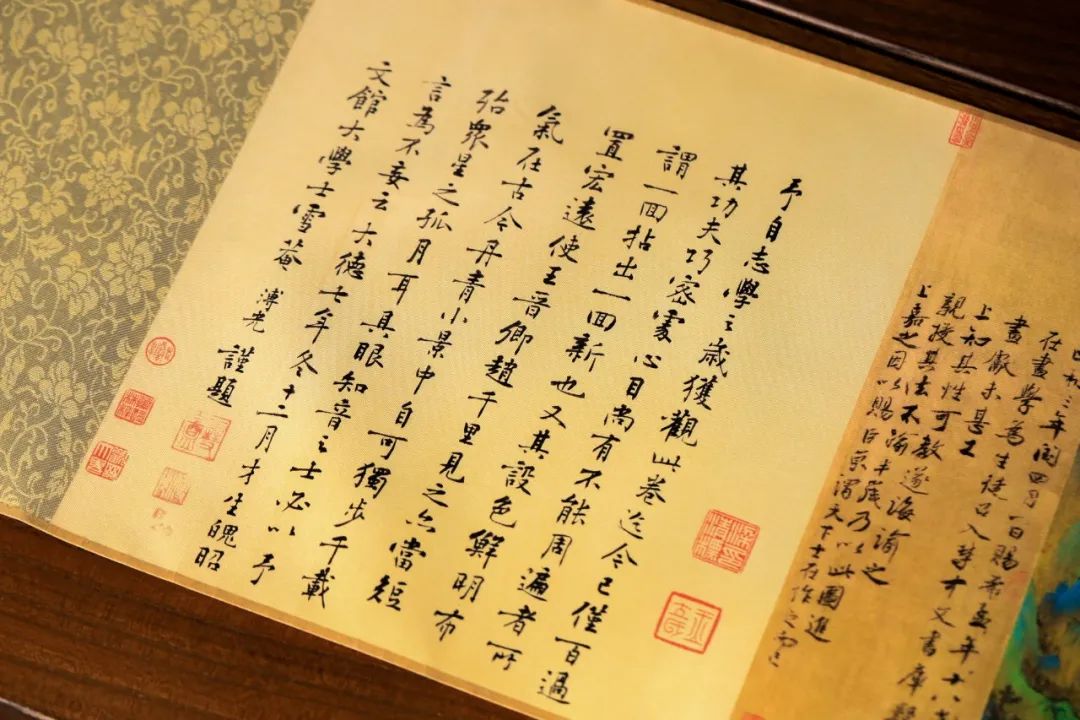 和三年閏四月一日賜希孟年十八
在畫學為生徒召入禁中文書庫數
畫獻未甚工
上知其性可教遂誨諭之
親授其法不踰半歲乃以此圖進
上嘉之因以賜臣京謂天下士在作之而已
予自志學之歲獲觀此卷迄今已僅百過
其功夫巧密處心目尚有不能周遍者所
謂一面拈出一面新也又其設色鮮明布
置宏遠使王晉卿趙千里見之亦當短
氣在古今丹青小景中自可獨步千載
殆眾星之孤月耳具眼知音之士必以予
言為不妄云大德七年冬十二月才生魄昭
文館大學士雪菴溥光謹題